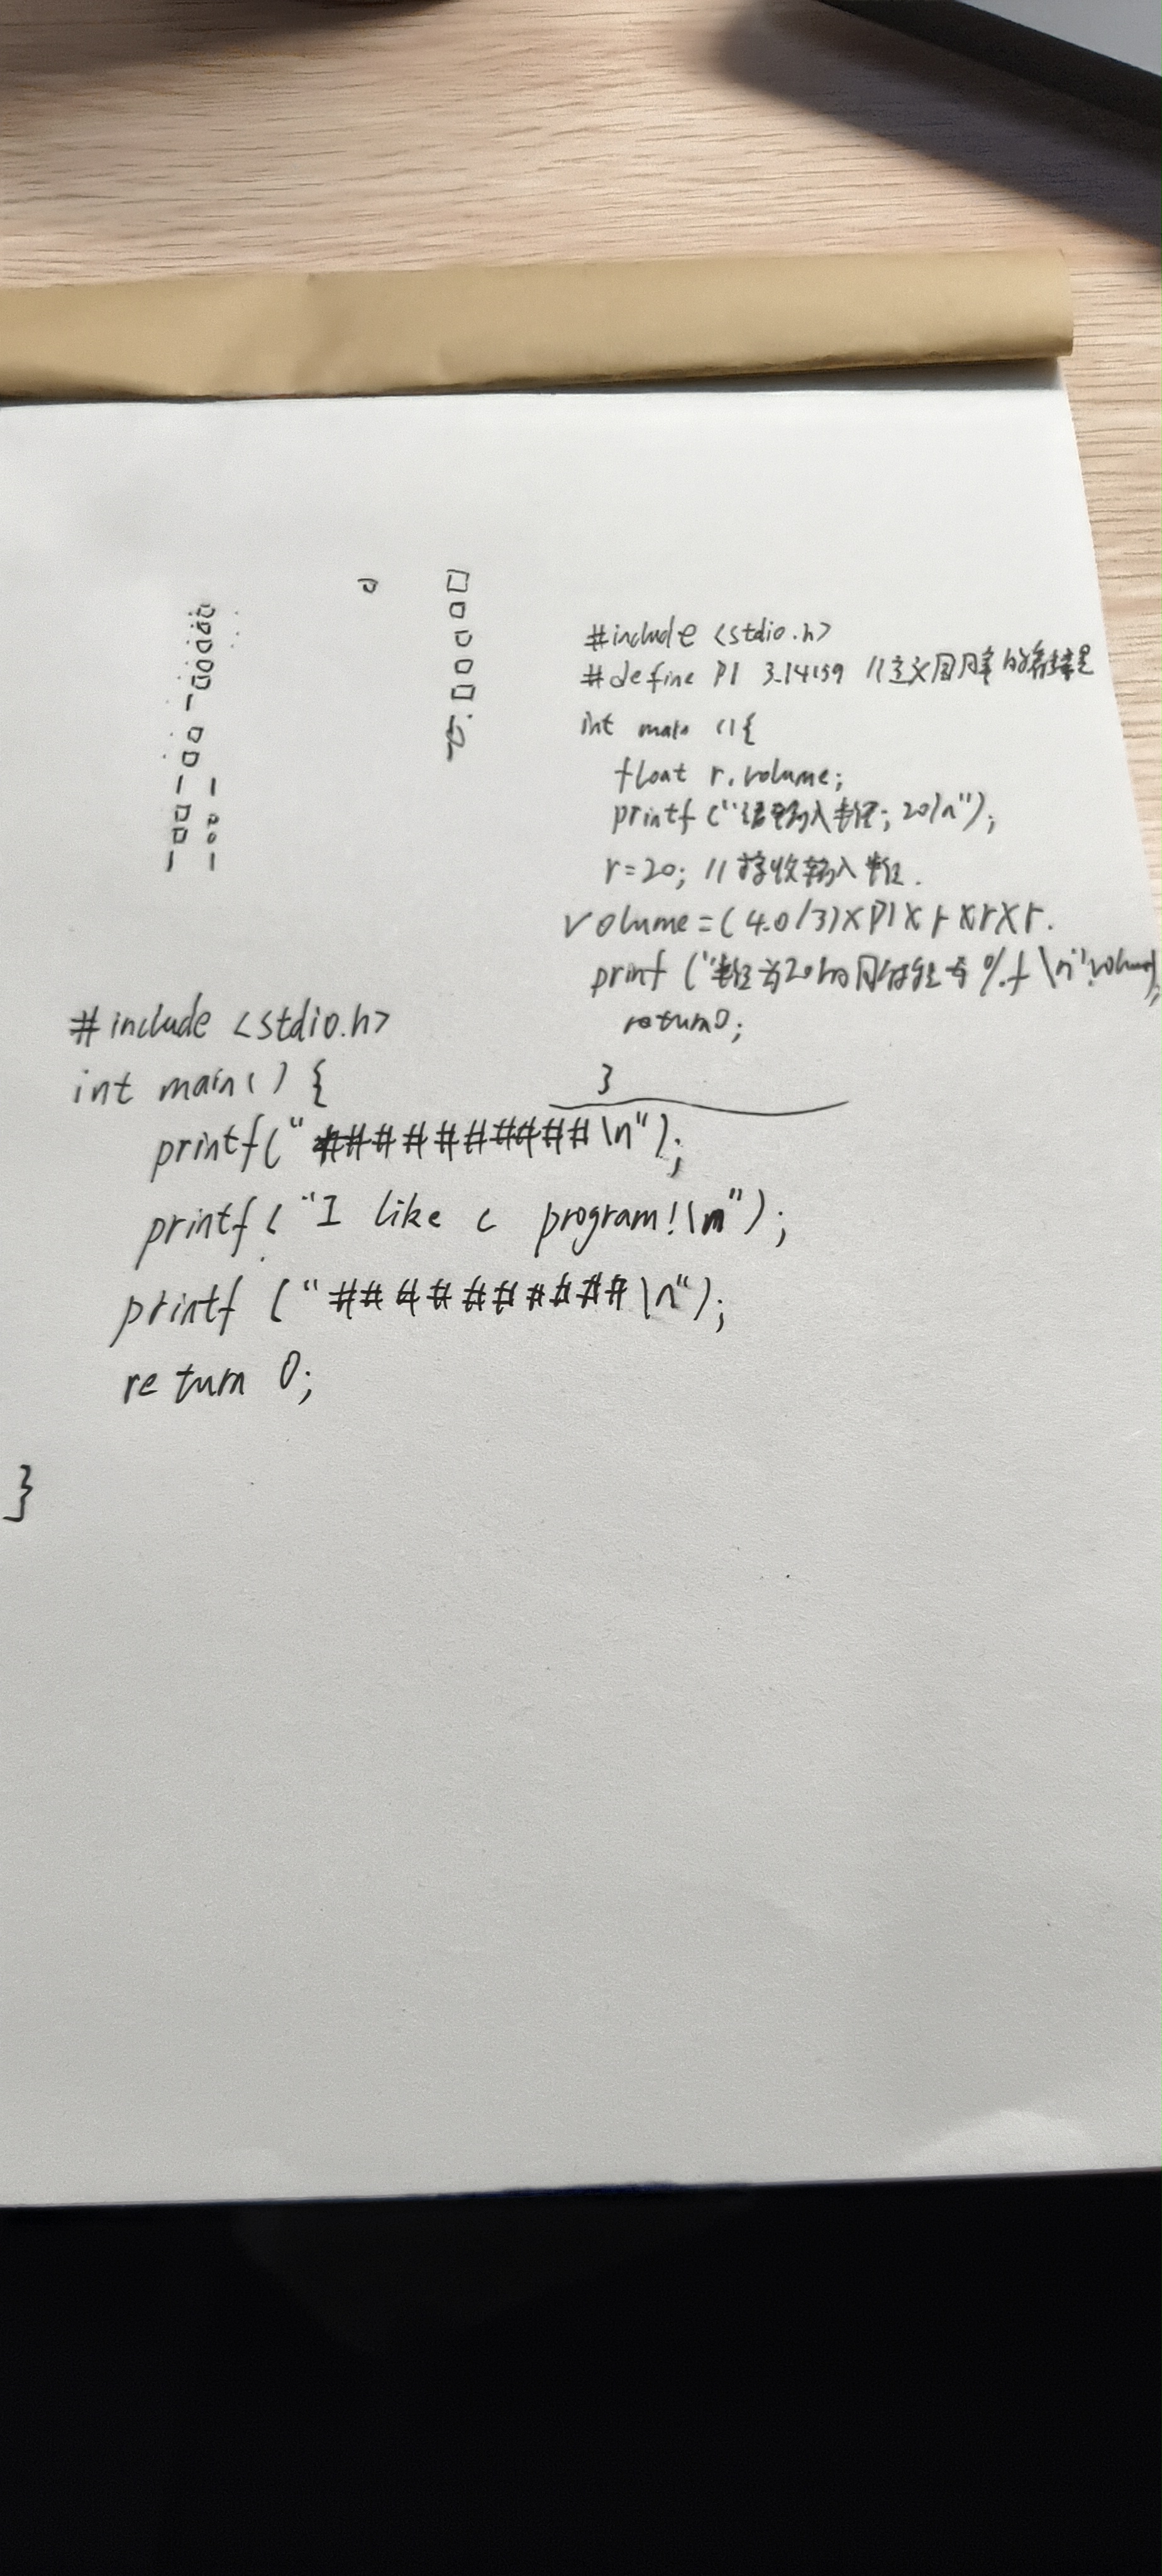 #include <stdio.h>
#define PI 3.14159 //定义圆周率的
int main (){
float r.volume;
printf ("输入半径; 20\n");
r=20; //接收输入半径.
volume=(4.0/3)×PI×r×r×r.
prinf ("半径为20的 %.f \n" volume);
return0;
}
#include <stdio.h>
int main() {
printf("##########\n");
printf("I like c program!\n");
printf ("##########\n");
return 0;
}